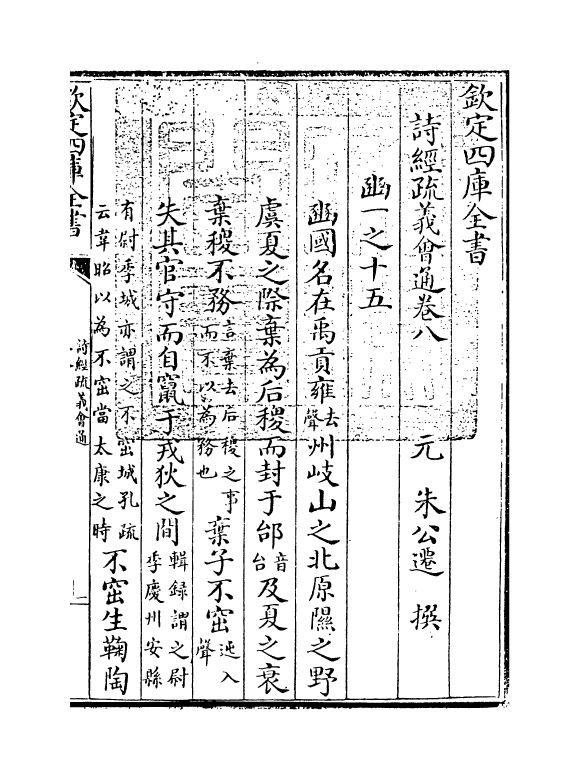 欽定四庫全書
詩經疏義會通卷八　元　朱公遷　撰
豳一之十五
豳國名在禹貢雍去聲州岐山之北原隰之野
虞夏之際棄為后稷而封于邰音台及夏之衰
棄稷不務言棄去后稷之事而不以為務也棄子不窋迍入聲
失其官守而自竄于戎狄之間輯録謂之尉季慶州安縣
有尉季城亦謂之不窋城孔疏云韋昭以為不窋當太康之時不窋生鞠陶
欽定四庫全書
詩經疏義會通
一